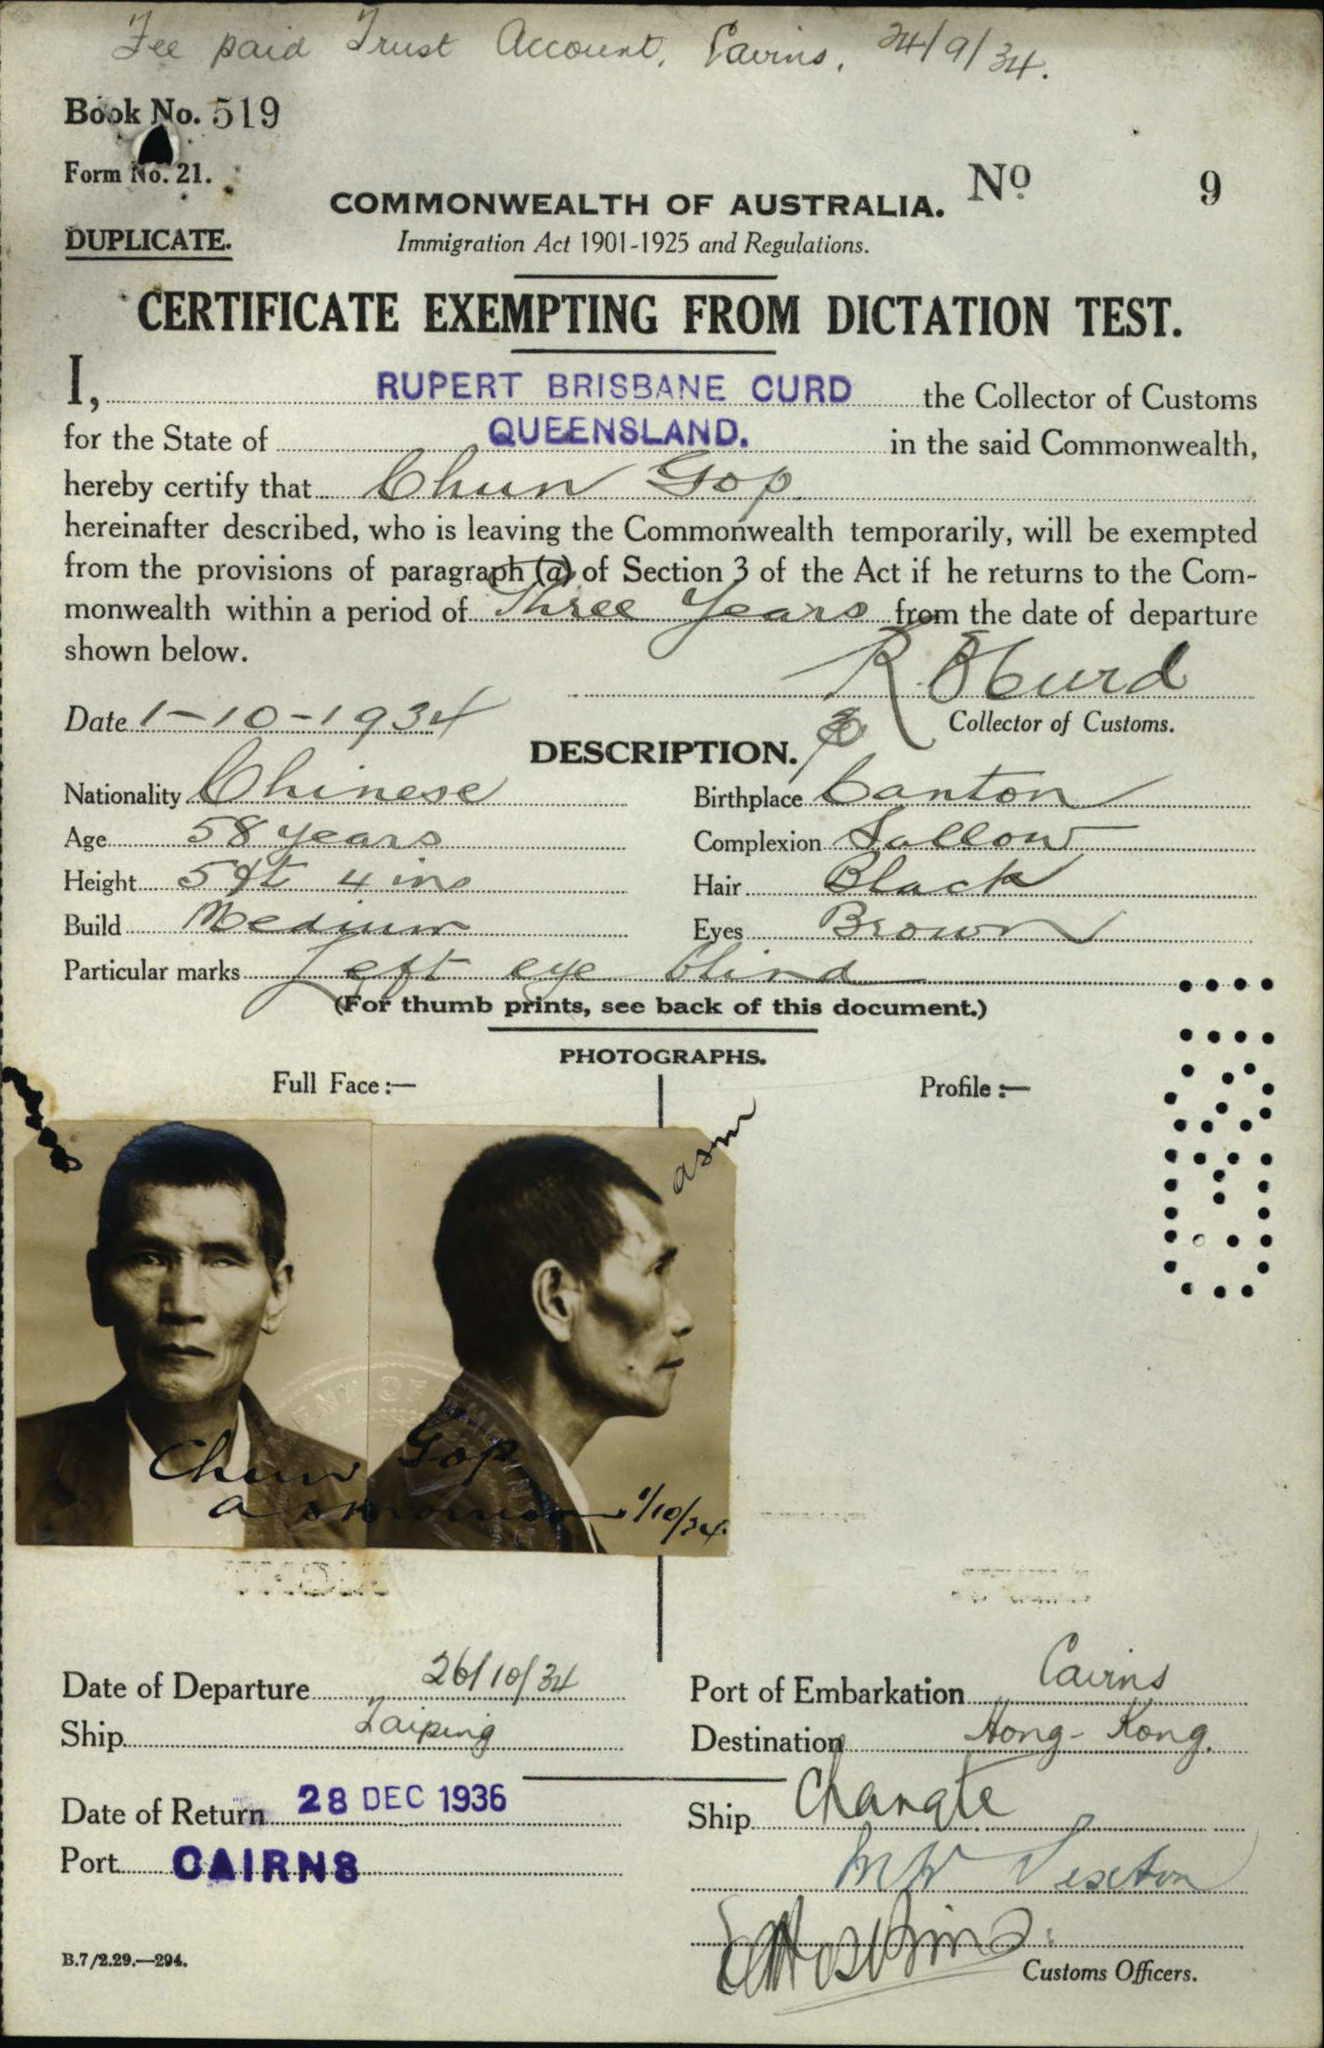 Fee paid Trust Account, Cairns, 24/9/34.
Book No. 519
Form No. 21.
No 9
COMMONWEALTH OF AUSTRALIA.
DUPLICATE.
Immigration Act 1901-1925 and Regulations.
CERTIFICATE EXEMPTING FROM DICTATION TEST.
I, RUPERT BRISBANE CURD the Collector of Customs
for the State of QUEENSLAND. in the said Commonwealth,
hereby certify that Chun Gop
hereinafter described, who is leaving the Commonwealth temporarily, will be exempted
from the provisions of paragraph (a) of Section 3 of the Act if he returns to the Com-
monwealth within a period of Three Years from the date of departure
shown below.
R B Curd
Date 1-10-1934
Collector of Customs.
DESCRIPTION.
Nationality Chinese Birthplace Canton
Age 58 years Complexion Sallow
Height 5 ft 4 ins Hair Black
Build Medium Eyes Brown
Particular marks Left eye blind
(For thumb prints, see back of this document.)
PHOTOGRAPHS.
Full Face :— Profile :—
asm
Chun Gop
1/10/34.
Date of Departure 26/10/34 Port of Embarkation Cairns
Ship Taiping Destination Hong-Kong.
Date of Return 28 DEC 1936 Ship Changte
Port CAIRNS
Customs Officers.
B.7/2.29.—294.